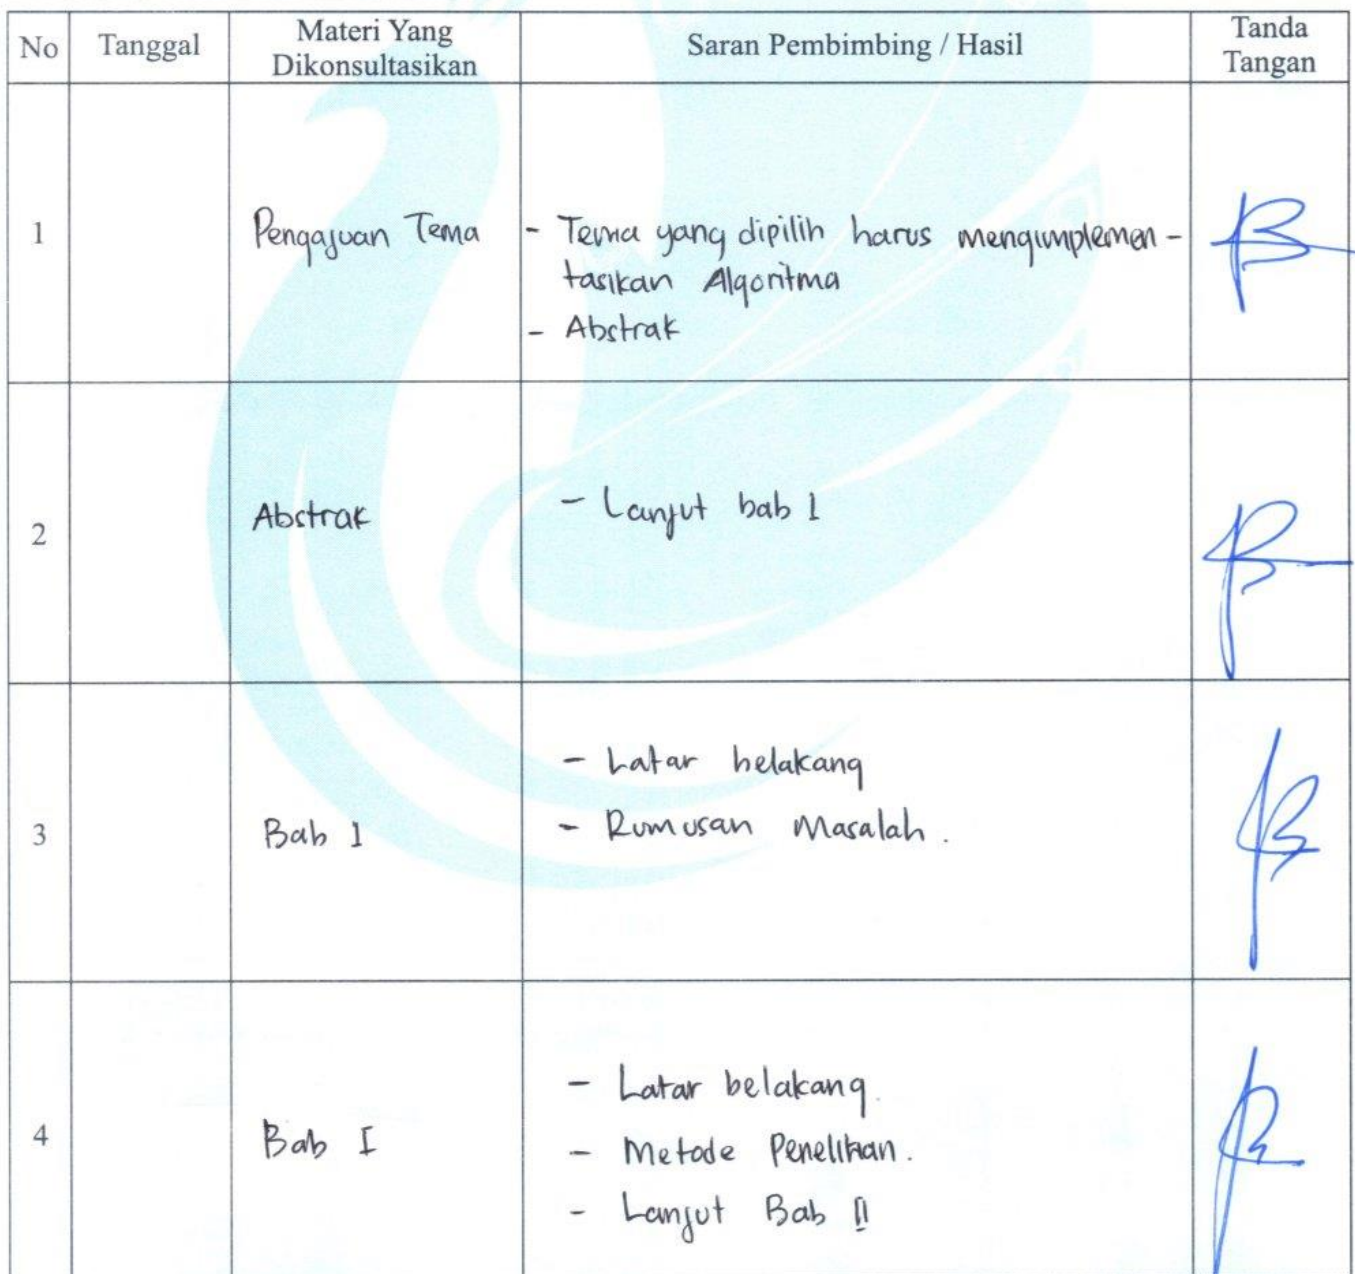 No Tanggal Materi Yang Dikonsultasikan Saran Pembimbing / Hasil Tanda Tangan
1 Pengajuan Tema - Tema yang dipilih harus mengimplemen-
tasikan Algoritma
- Abstrak
2 Abstrak - Lanjut bab 1
3 Bab 1 - Latar belakang
- Rumusan Masalah.
4 Bab I - Latar belakang.
- Metode Penelitian.
- Lanjut Bab II